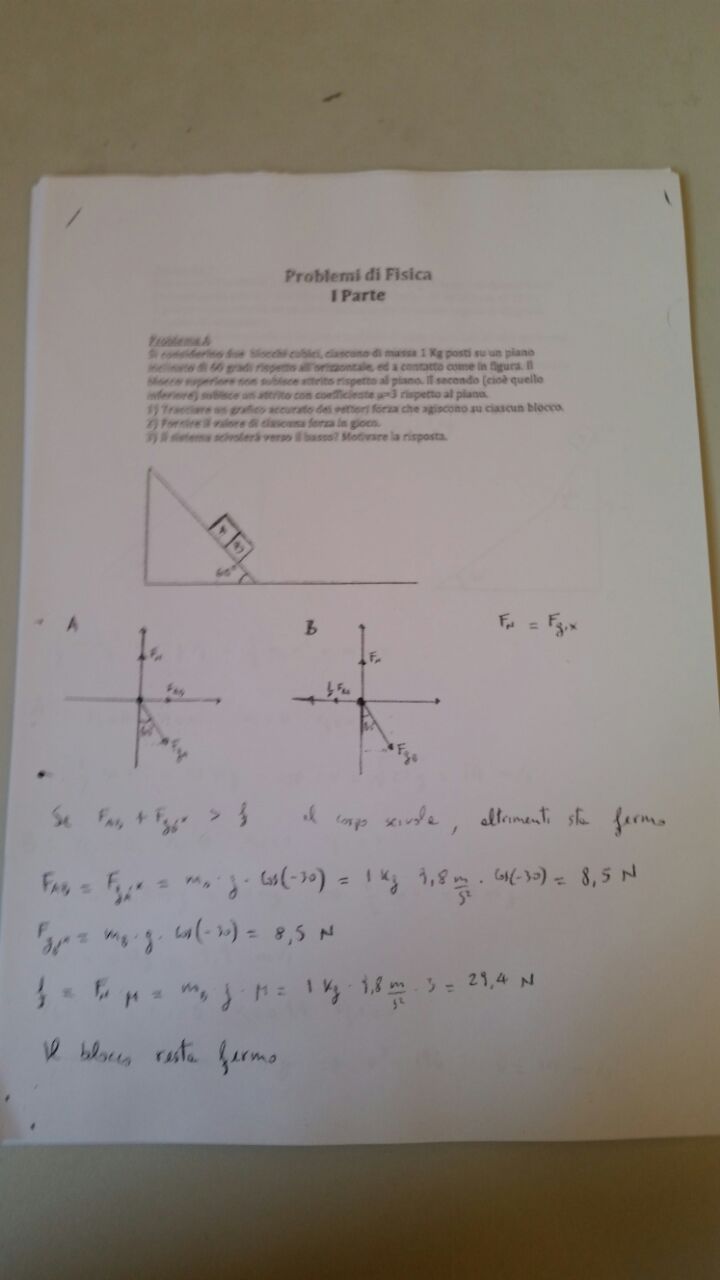 Problemi di Fisica
I Parte
Problema A
Si considerino due blocchi cubici, ciascuno di massa 1 Kg posti su un piano
inclinato di 60 gradi rispetto all'orizzontale, ed a contatto come in figura. Il
blocco superiore non subisce attrito rispetto al piano. Il secondo (cioè quello
inferiore) subisce un attrito con coefficiente μ=3 rispetto al piano.
1) Tracciare un grafico accurato dei vettori forza che agiscono su ciascun blocco.
2) Fornire il valore di ciascuna forza in gioco.
3) Il sistema scivolerà verso il basso? Motivare la risposta.
A B
60°
A B Fₙ = F_g,x
Fₙ Fₙ
F_AB f F_AB
60 60
F_gA F_gB
Se F_AB + F_gBx > f il corpo scivola, altrimenti sta fermo
F_AB = F_gAx = m_A · g · cos(-30) = 1 Kg 9,8 m/s² · cos(-30) = 8,5 N
F_gBx = m_B · g · cos(-30) = 8,5 N
f = Fₙ · μ = m_B · g · μ = 1 Kg · 9,8 m/s² · 3 = 29,4 N
Il blocco resta fermo